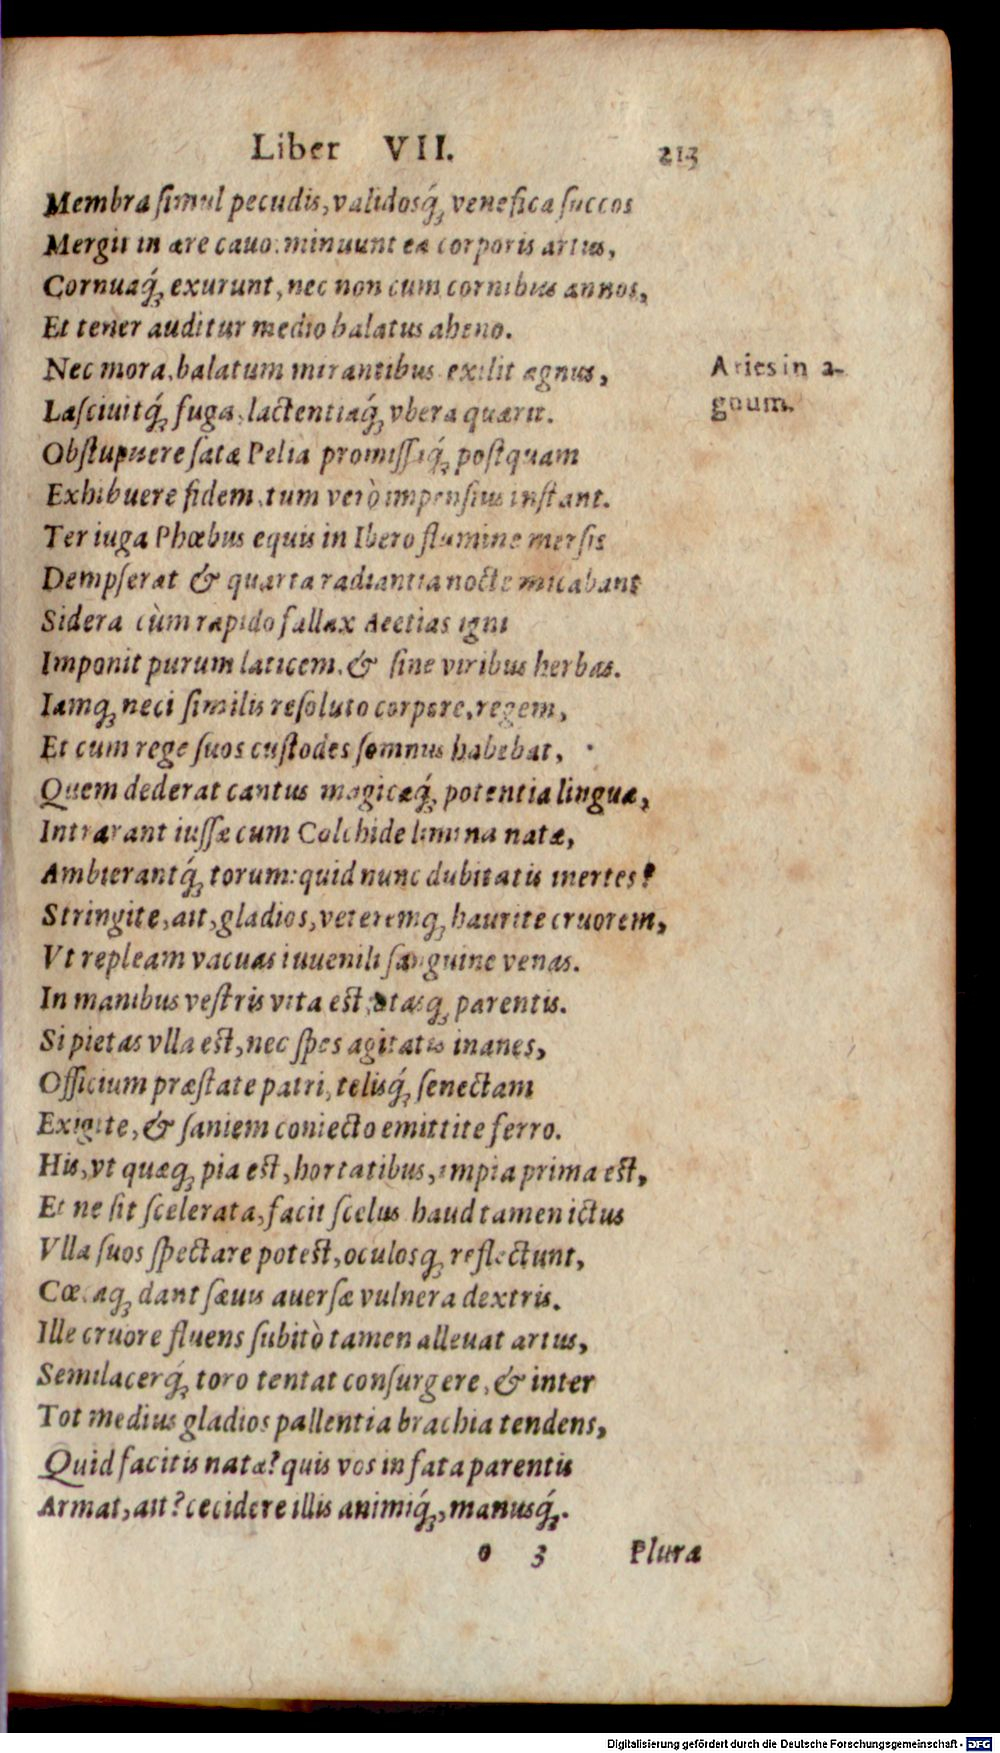 Liber VII. 213
Membra simul pecudis, validosq́; venefica succos
Mergit in ære cavo: minuunt ea corporis artus,
Cornuaq́; exurunt, nec non cum cornibus annos,
Et tener auditur medio balatus aheno.
Nec mora, balatum mirantibus exilit agnus,
Aries in a-
gnum.
Lasciuitq́; fuga, lactentiaq́; vbera quærit.
Obstupuere satæ Pelia promissaq́; postquam
Exhibuere fidem, tum verò impensius instant.
Ter iuga Phœbus equis in Ibero flumine mersis
Dempserat & quarta radiantia nocte micabant
Sidera cùm rapido fallax Aeetias igni
Imponit purum laticem, & sine viribus herbas.
Iamq; neci similis resoluto corpore, regem,
Et cum rege suos custodes somnus habebat,
Quem dederat cantus magicæq́; potentia linguæ,
Intrarant iussæ cum Colchide limina natæ,
Ambierantq́; torum: quid nunc dubitatis inertes?
Stringite, ait, gladios, veteremq; haurite cruorem,
Vt repleam vacuas iuuenili sanguine venas.
In manibus vestris vita est, ætasq; parentis.
Si pietas vlla est, nec spes agitatis inanes,
Officium præstate patri, telisq́; senectam
Exigite, & saniem coniecto emittite ferro.
His, vt quæq; pia est, hortatibus, impia prima est,
Et ne sit scelerata, facit scelus haud tamen ictus
Vlla suos spectare potest, oculosq; reflectunt,
Cœcaq; dant sæuis auersæ vulnera dextris.
Ille cruore fluens subitò tamen alleuat artus,
Semilacerq́; toro tentat consurgere, & inter
Tot medius gladios pallentia brachia tendens,
Quid facitis natæ? quis vos in fata parentis
Armat, ait? cecidere illis animiq́;, manusq́;.
o 3 Plura
Digitalisierung gefördert durch die Deutsche Forschungsgemeinschaft - DFG